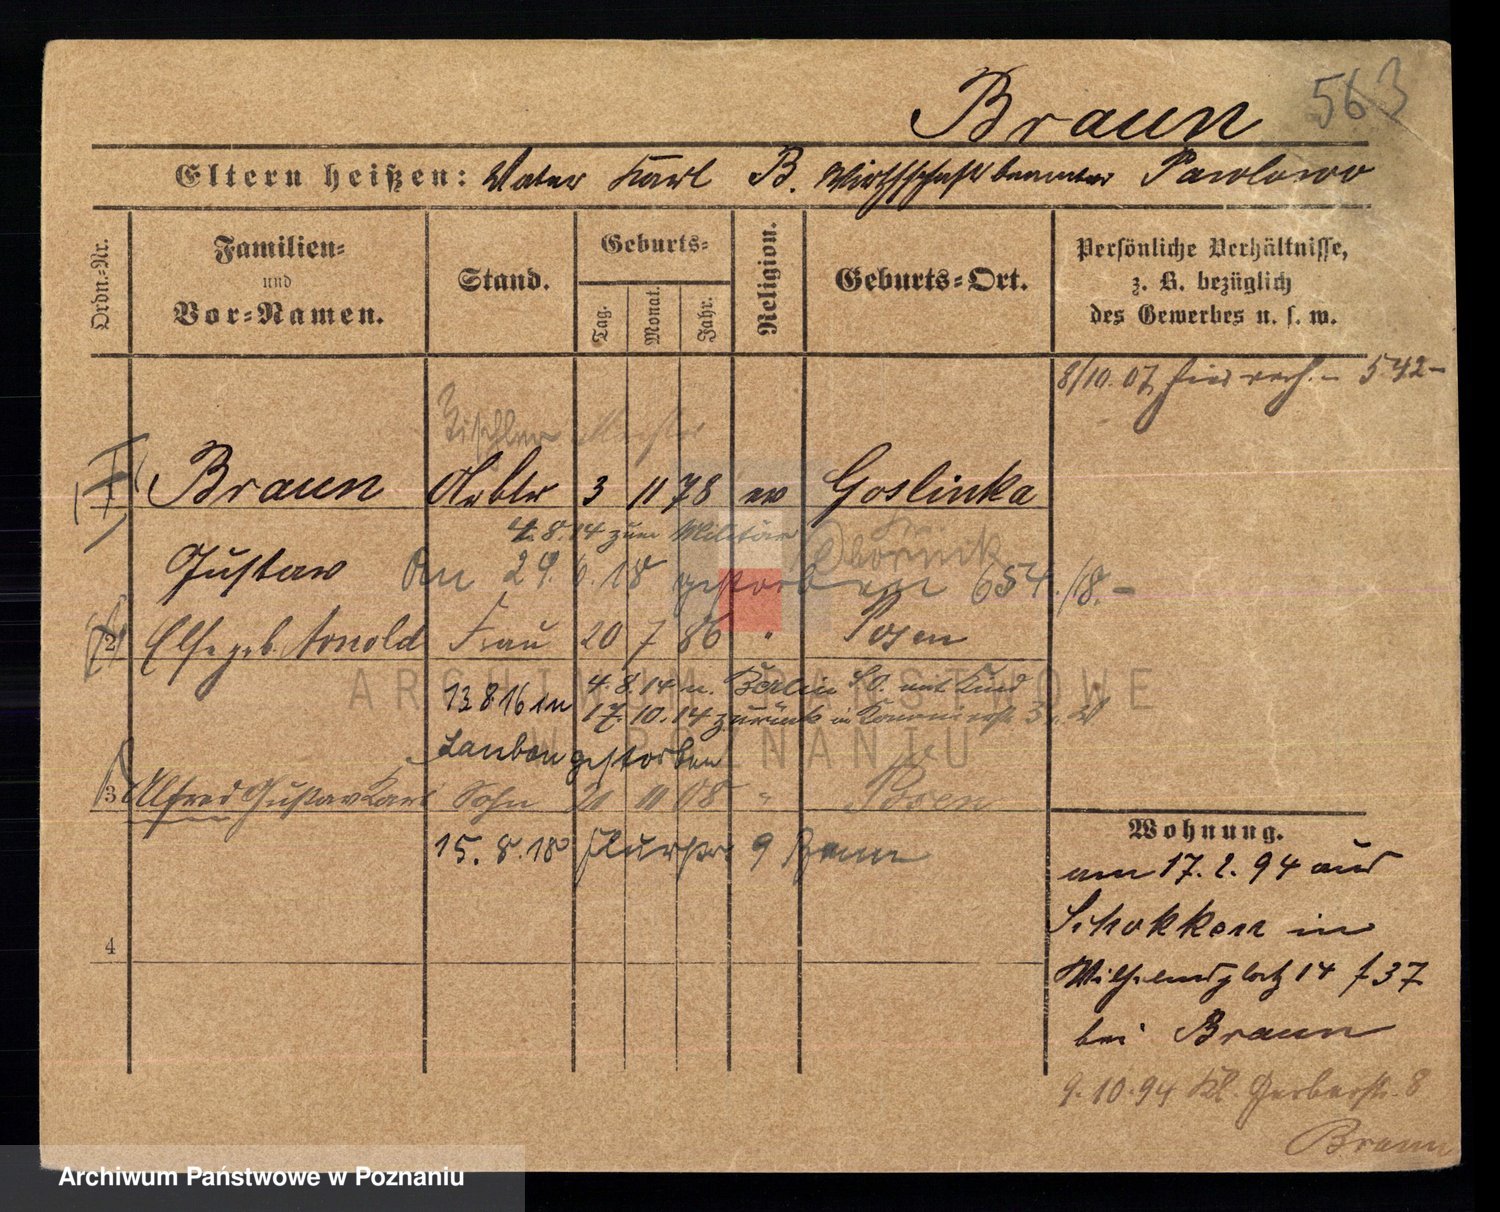 563
Braun
Eltern heißen: Vater Karl B. Wirthschaftsbeamter Pawlowo
Ordn.-Nr.
Familien-
und
Vor-Namen.
Stand.
Geburts-
Tag.
Monat.
Jahr.
Religion.
Geburts-Ort.
Persönliche Verhältnisse,
z. B. bezüglich
des Gewerbes u. s. w.
8/10. 07 542-
Tischler Meister
1 Braun Arbtr 3 11 78 ev Goslinka
4.8.14 zum Militär
Kr. Obornik
Gustav
Am 29. 6. 18 gestorben 654/18.-
2 Else geb. Arnold Frau 20 7 86 " Posen
4.8.14 n. Berlin SO. mit Kind
13 8 16 in
17.10.14 zurück in
Lauban gestorben
3 Alfred Gustav Karl Sohn 21 11 08 " Posen
15. 8. 18 9 Braun
4
Wohnung.
am 17. 2. 94 aus
Schokken in
Wilhelmsplatz 14 f 37
bei Braun
9.10.94 Kl. Gerberstr. 8
Braun
ARCHIWUM PAŃSTWOWE
W POZNANIU
Archiwum Państwowe w Poznaniu